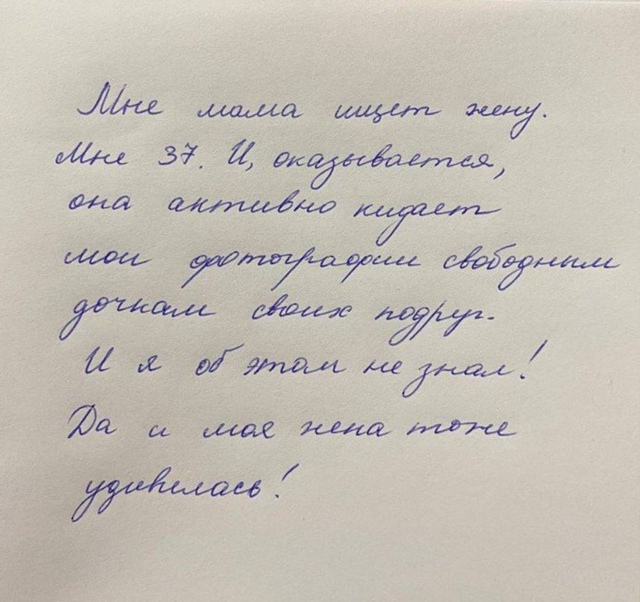 Мне мама ищет жену.
Мне 37. И, оказывается,
она активно кидает
мои фотографии свободным
дочкам своих подруг.
И я об этом не знал!
Да и моя жена тоже
удивилась!